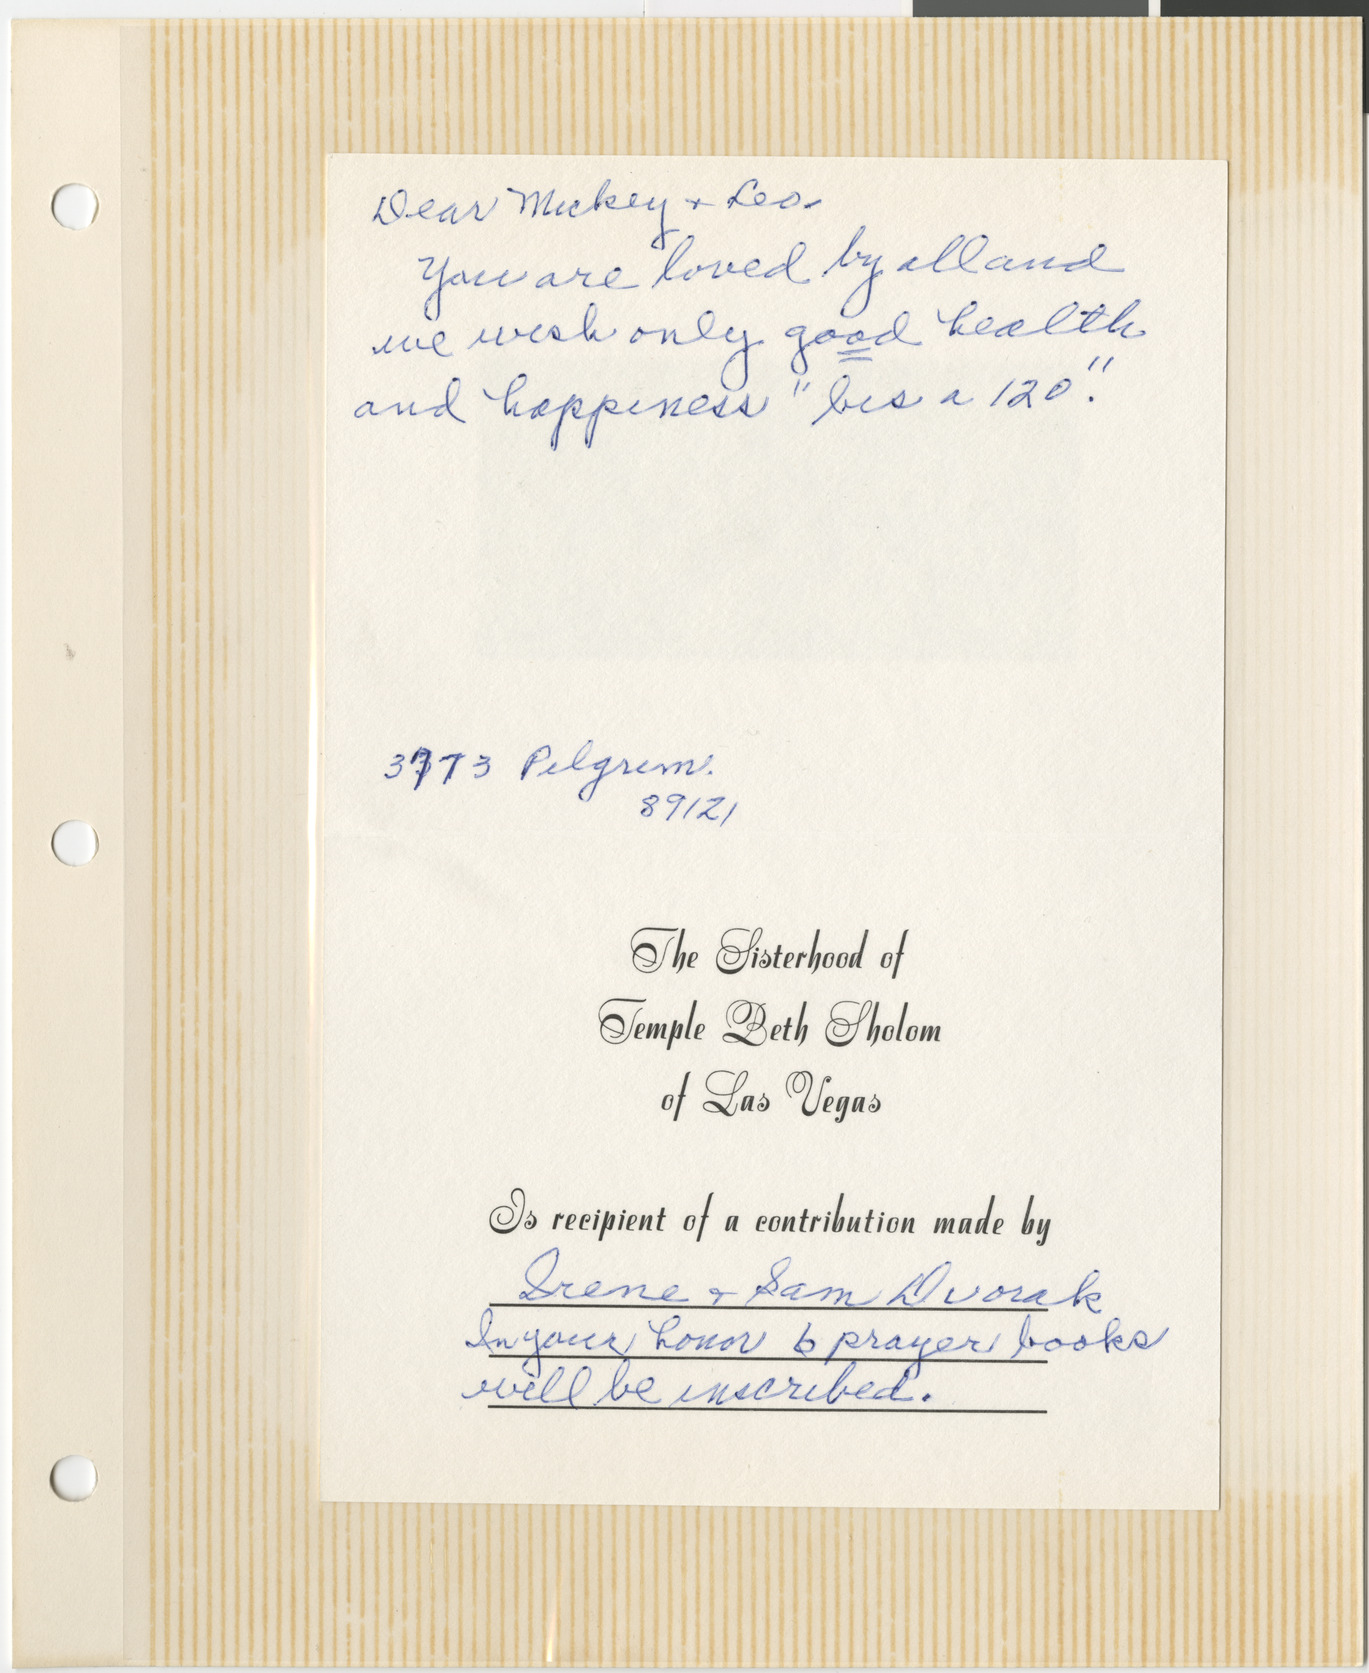 Dear Mickey + Leo.
You are loved by all and
we wish only good health
and happiness "bis a 120".
3773 Pilgrim.
89121
The Sisterhood of
Temple Beth Sholom
of Las Vegas
Is recipient of a contribution made by
Irene + Sam Dvorak
In your honor 6 prayer books
will be inscribed.